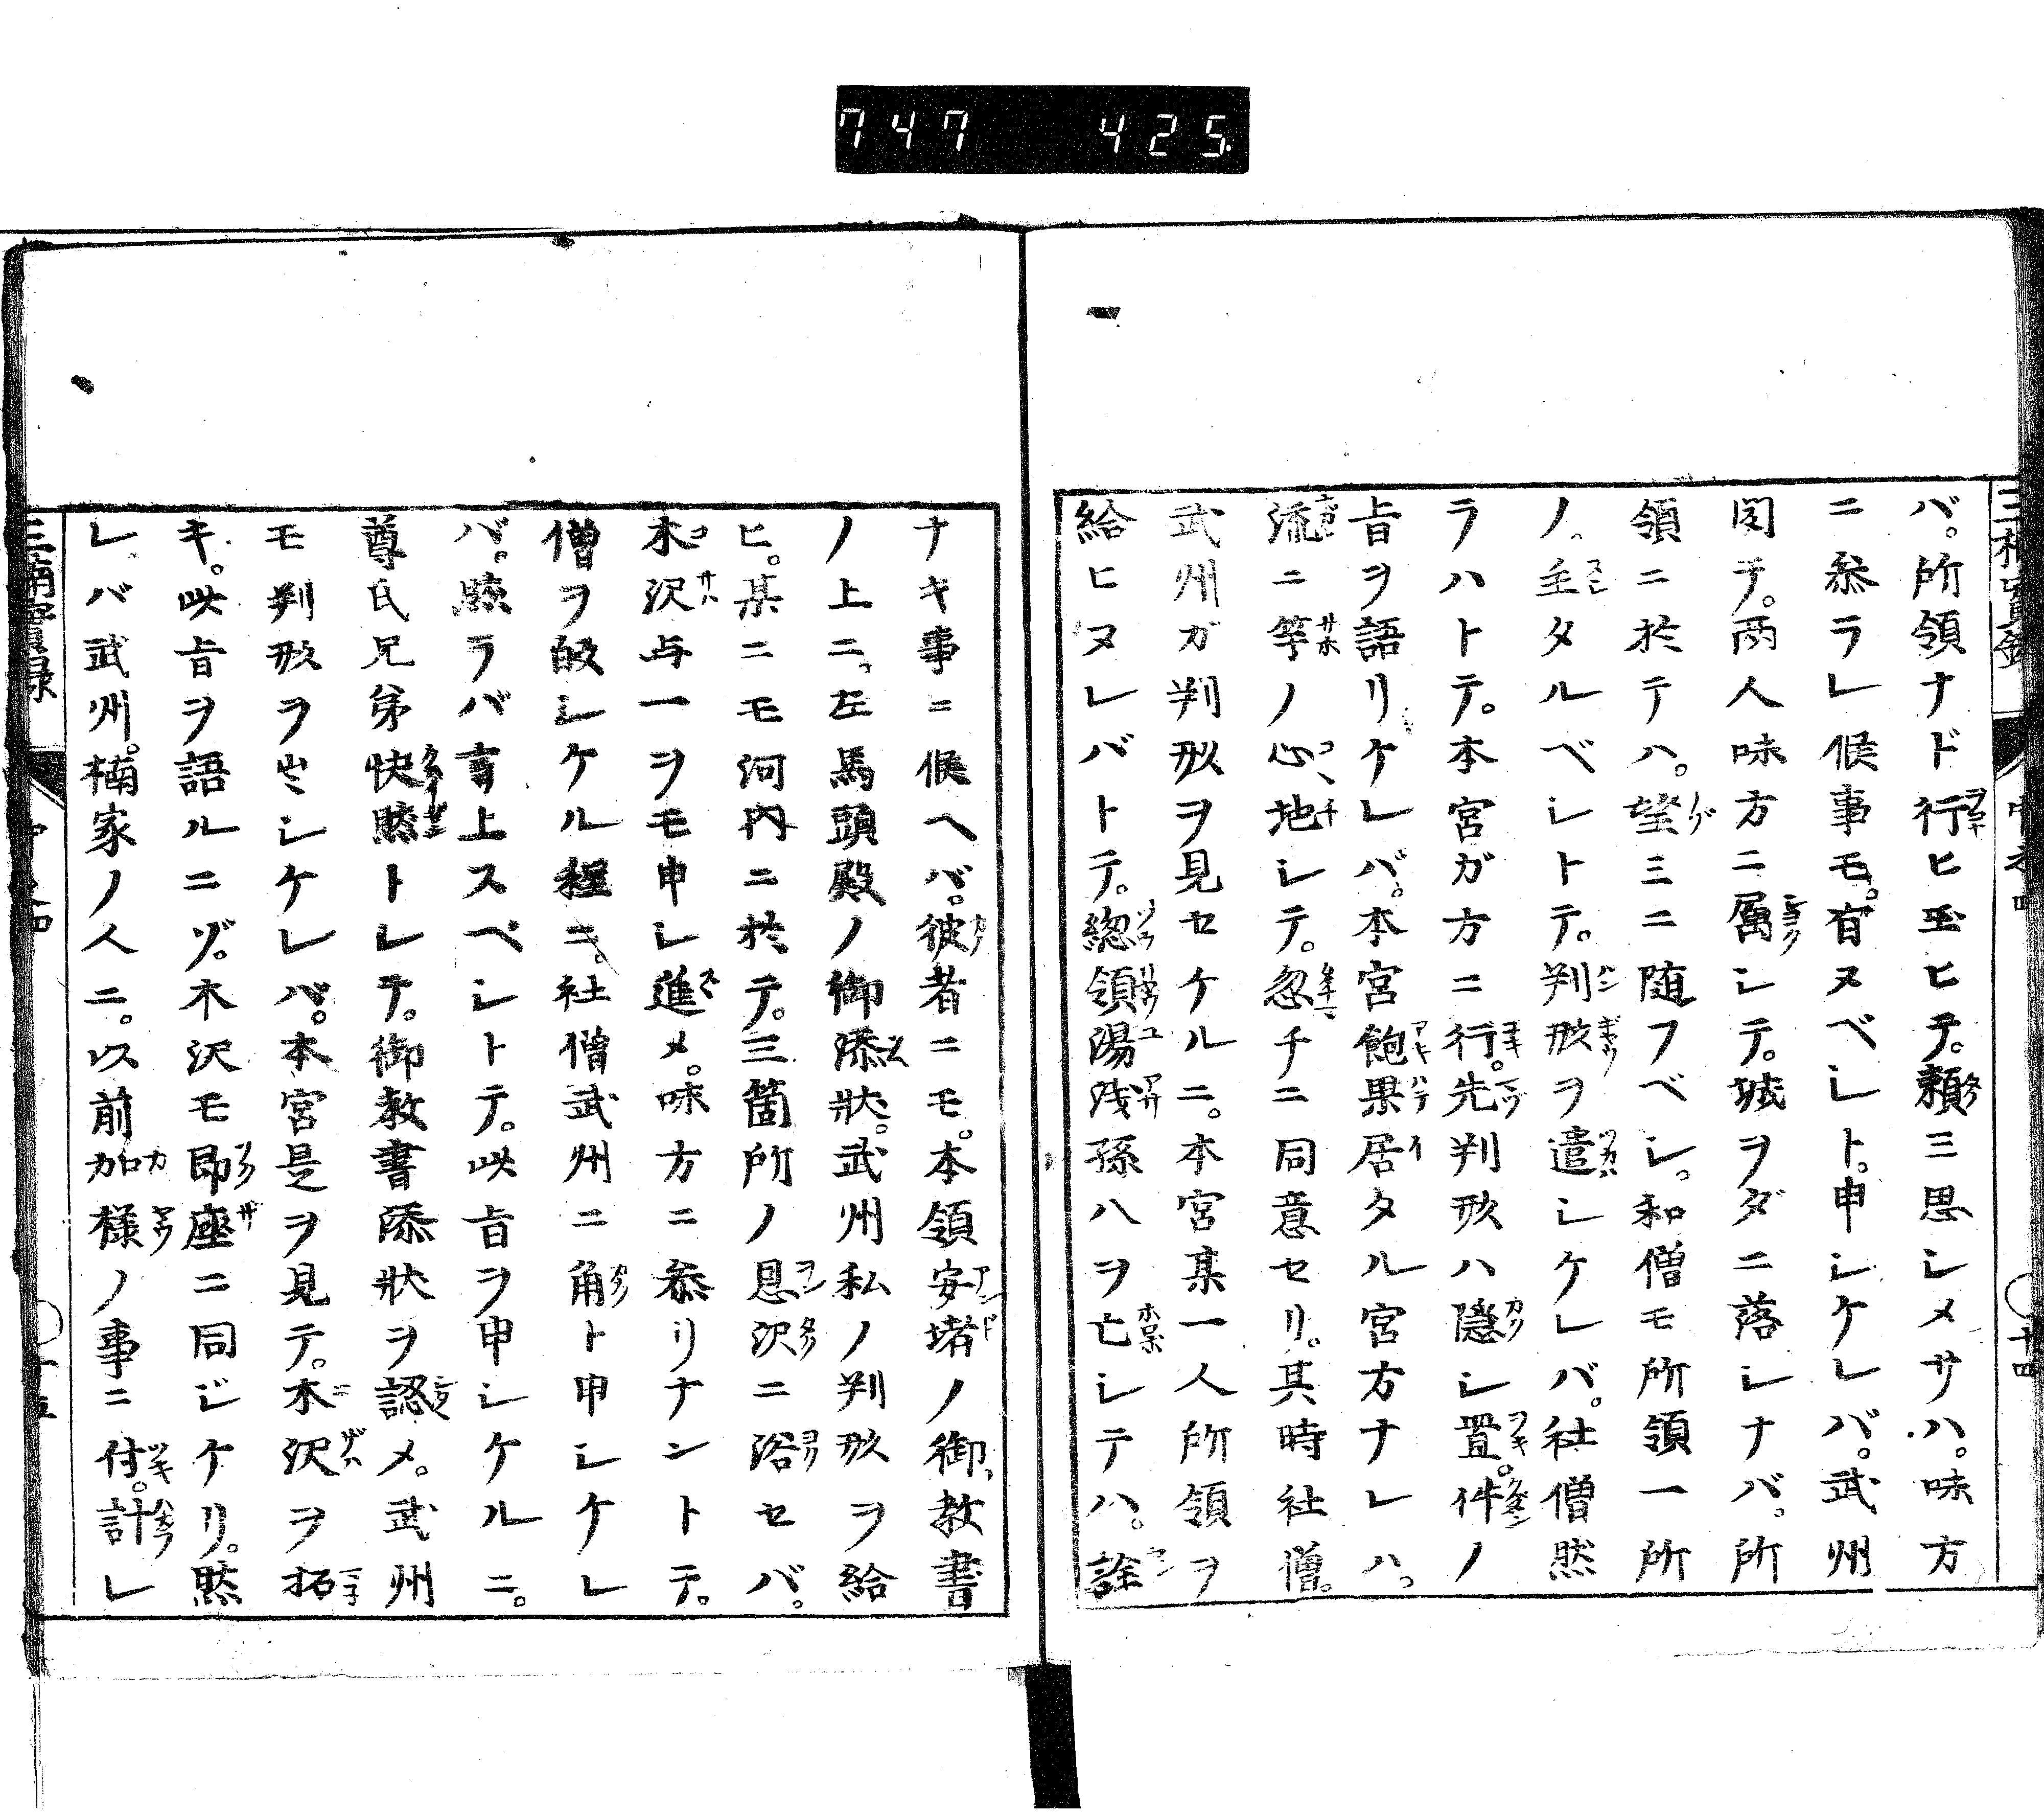 747 425
バ。所領ナド行ヒ玉ヒテ。頼三思シメサハ。味方
ニ参ラレ候事モ。有ヌベシト。申シケレバ。武州
聞テ。両人味方ニ属シテ。城ヲダニ落シナバ。所
領ニ於テハ。望ミニ随フベシ。和僧モ所領一所
ノ。主タルベシトテ。判形ヲ遣シケレバ。社僧然
ラハトテ。本宮ガ方ニ行。先判形ハ隠シ置。件ノ
旨ヲ語リケレバ。本宮飽果居タル宮方ナレハ。
流ニ竿ノ心地シテ。忽チニ同意セリ。其時社僧。
武州ガ判形ヲ見セケルニ。本宮某一人所領ヲ
給ヒヌレバトテ。総領湯浅孫ハヲ亡シテハ。詮
ナキ事ニ候ヘバ。彼者ニモ。本領安堵ノ御教書
ノ上ニ。左馬頭殿ノ御添状。武州私ノ判形ヲ給
ヒ。某ニモ河内ニ於テ。三箇所ノ恩沢ニ浴セバ。
木沢与一ヲモ申シ進メ。味方ニ参リナントテ。
僧ヲ皈シケル程ニ。社僧武州ニ角ト申シケレ
バ。然ラバ言上スベシトテ。此旨ヲ申シケルニ。
尊氏兄弟快然トシテ。御教書添状ヲ認メ。武州
モ判形ヲ出シケレバ。本宮是ヲ見テ。木沢ヲ招
キ。此旨ヲ語ルニゾ。木沢モ即座ニ同ジケリ。然
レバ武州。楠家ノ人ニ。以前加様ノ事ニ付。計レ
三楠實録
十四